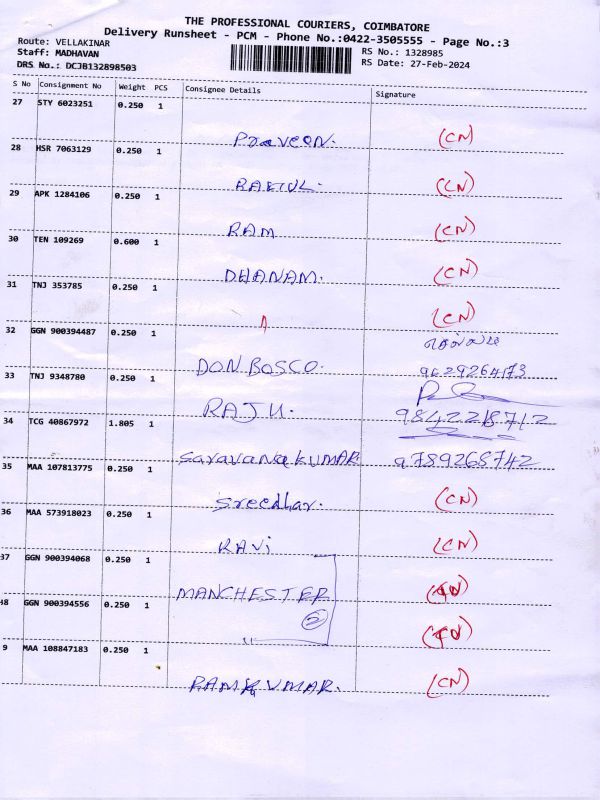 THE PROFESSIONAL COURIERS, COIMBATORE
Delivery Runsheet - PCM - Phone No.:0422-3505555 - Page No.:3
Route: VELLAKINAR RS No.: 1328985
Staff: MADHAVAN RS Date: 27-Feb-2024
DRS No.: DCJB132898503
S No Consignment No Weight PCS Consignee Details Signature
27 STY 6023251 0.250 1
Praveen. (CN)
28 HSR 7063129 0.250 1
RAHUL. (CN)
29 APK 1284106 0.250 1
RAM (CN)
30 TEN 109269 0.600 1
DHANAM. (CN)
31 TNJ 353785 0.250 1
(CN)
32 GGN 900394487 0.250 1
DON BOSCO. 9629264173
33 TNJ 9348780 0.250 1
RAJU. 9842218712
34 TCG 40867972 1.805 1
SaravanaKUMAR. 9789268742
35 MAA 107813775 0.250 1
Sreedhar. (CN)
36 MAA 573918023 0.250 1
RAVi (CN)
37 GGN 900394068 0.250 1
MANCHESTER
2
38 GGN 900394556 0.250 1
9 MAA 108847183 0.250 1
RAMKUMAR. (CN)